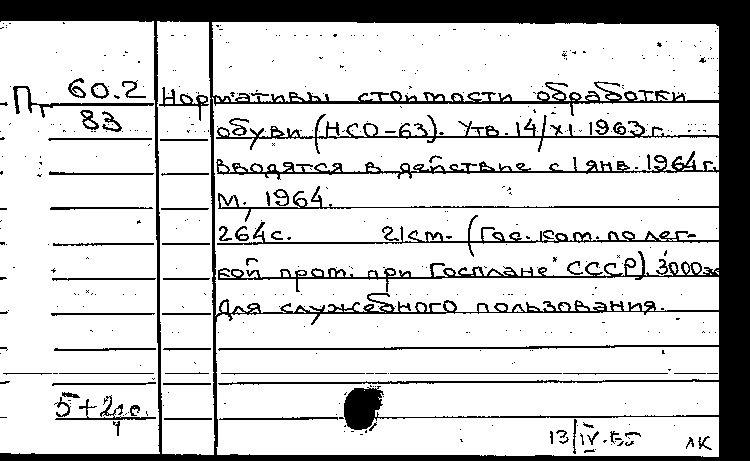 Пт 60.2
83
Нормативы стоимости обработки
обуви (НСО-63). Утв. 14/XI 1963 г.
Вводятся в действие с 1 янв. 1964 г.
М., 1964.
264 с. 21 см. (Гос. ком. по лег-
кой пром. при Госплане СССР). 3000 э
Для служебного пользования.
5+2
13/IV-65 ЛК